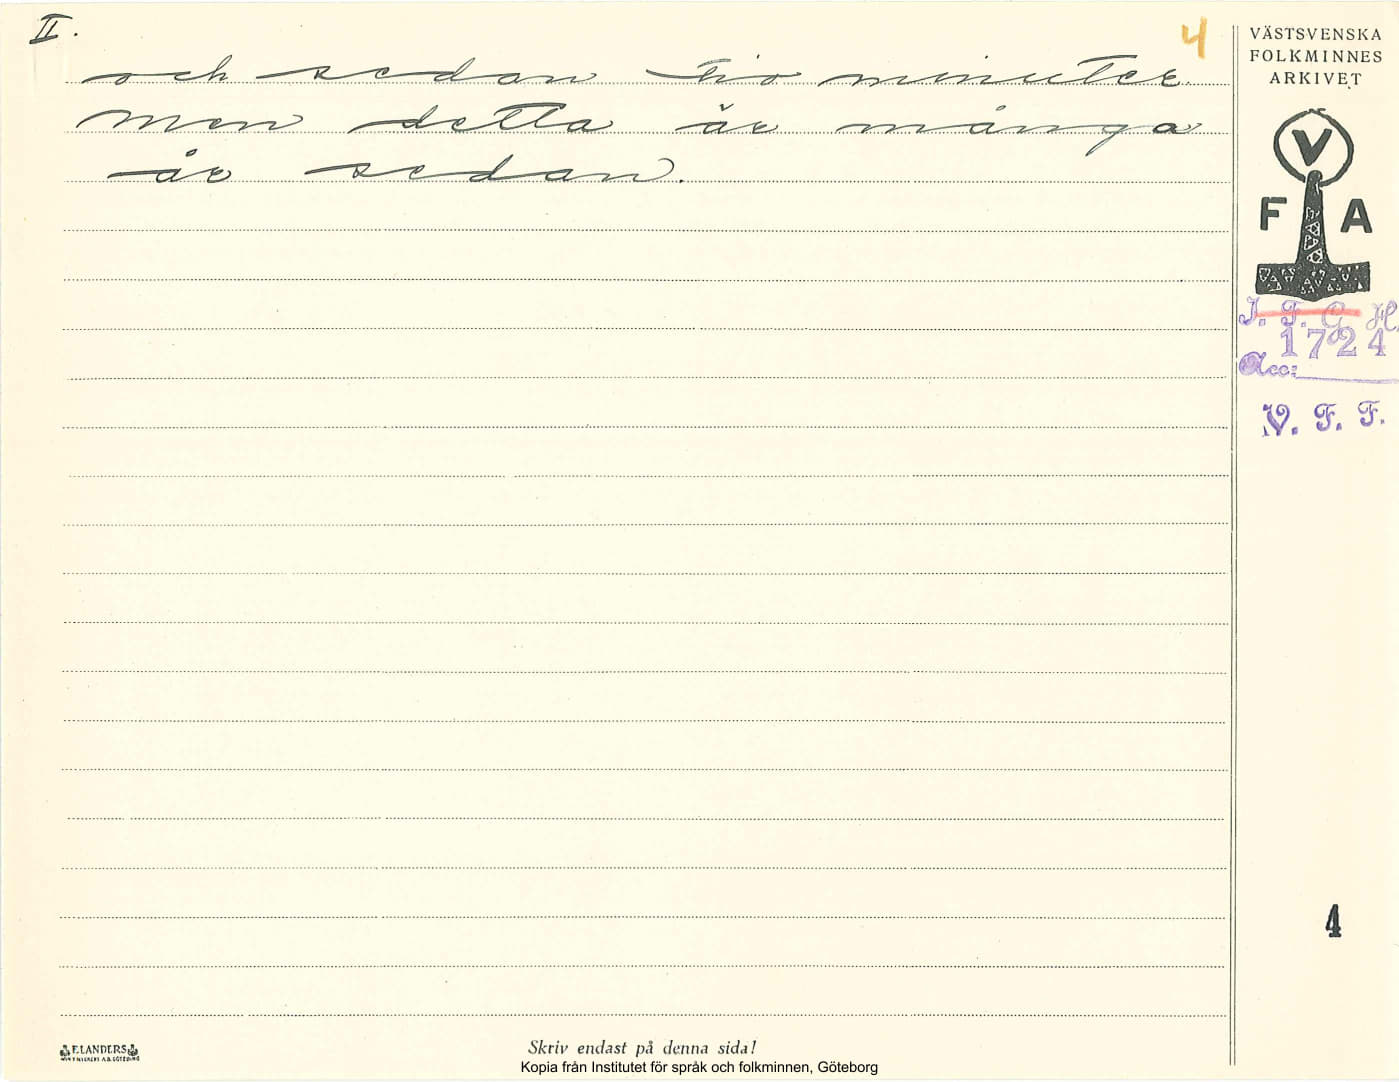 II.
4
och sedan tio minuter
men detta är många
år sedan.
VÄSTSVENSKA
FOLKMINNES
ARKIVET
V
F A
I. F. G. H.
1724
Acc:
V. F. F.
4
ELANDERS
Skriv endast på denna sida!
Kopia från Institutet för språk och folkminnen, Göteborg